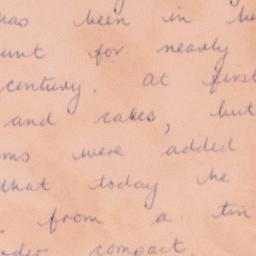 has been in
unt for nearly
century. at first
and cakes, but
ms were added
that today he
from a tin
compact